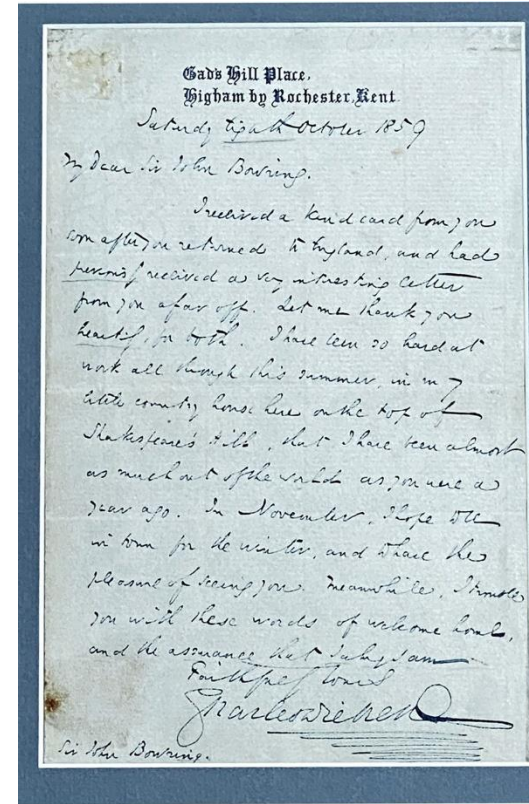 Gad's Hill Place,
Higham by Rochester, Kent.
Saturday Eighth October 1859
My Dear Sir John Bowring.
I received a kind card from you
soon after you returned to England, and had
previously received a very interesting letter
from you afar off. Let me thank you
heartily for both. I have been so hard at
work all through this summer, in my
little country house here on the top of
Shakespeare's Hill, that I have been almost
as much out of the world as you were a
year ago. In November, I hope to be
in town for the winter, and to have the
pleasure of seeing you. Meanwhile, I trouble
you with these words of welcome home,
and the assurance that I always am
Faithfully Yours
Charles Dickens
Sir John Bowring.